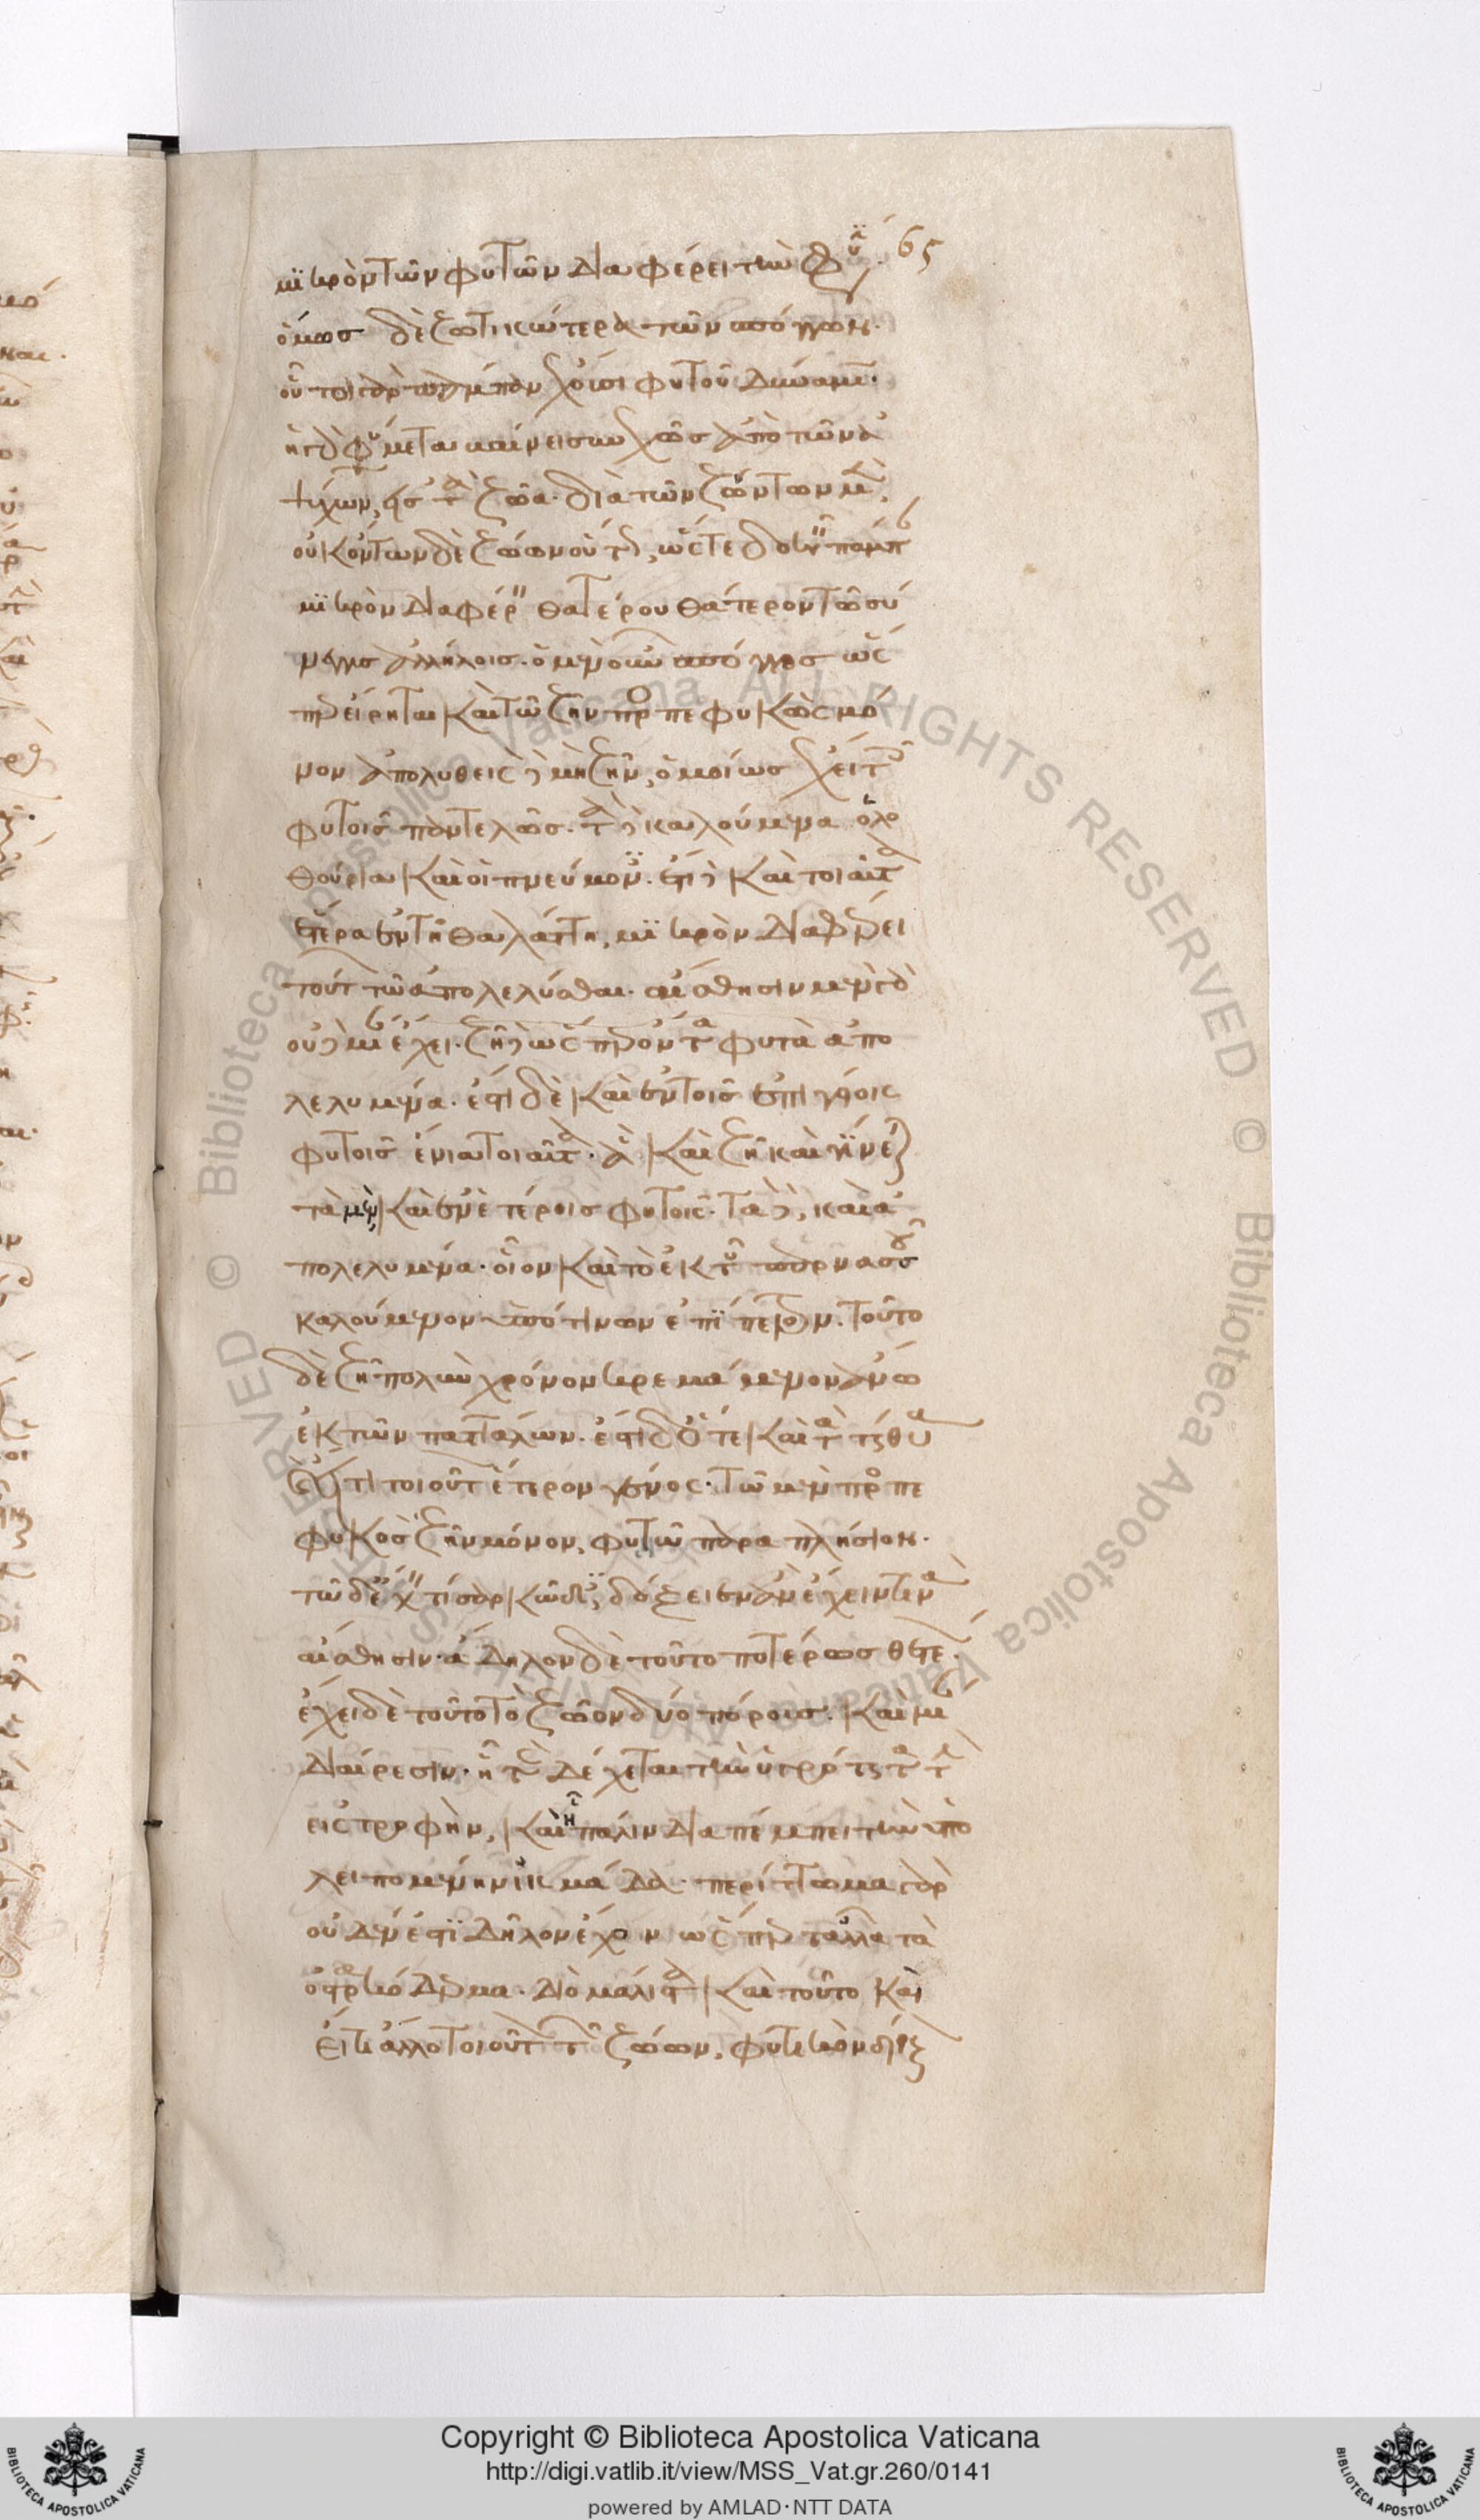 65
μικρὸν τῶν φυτῶν διαφέρει τὴν φύσιν.
ὅμως δὲ ζωτικώτερα τῶν σπόγγων.
οὗτοι γὰρ πάμπαν ἔχουσι φυτοῦ δύναμιν.
ἡ γὰρ φύσις μεταβαίνει συνεχῶς ἀπὸ τῶν ἀ
ψύχων εἰς τὰ ζῶα. διὰ τῶν ζώντων μὲν,
οὐκ ὄντων δὲ ζώων οὕτως, ὥστε δοκεῖν πάμπαν
μικρὸν διαφέρειν θατέρου θάτερον τῶ σύ
νεγγυς ἀλλήλοις. ὁ μὲν οὖν σπόγγος ὥς
περ εἴρηται καὶ τῶ ζῆν προσπεφυκὼς μό
νον ἀπολυθεὶς δὲ μὴ ζῆν, ὁμοίως ἔχει τοῖς
φυτοῖς παντελῶς. τὰ δὲ καλούμενα ὁλο
θούρια καὶ οἱ πνεύμονες. ἔτι δὲ καὶ τοιαῦτα
ἕτερα ἐν τῆ θαλάττη, μικρὸν διαφέρει
τούτων τῶ ἀπολελύσθαι. αἴσθησιν μὲν γὰρ
οὐδεμίαν ἔχει. ζῆ δὲ ὥσπερ ὄντα φυτὰ ἀπο
λελυμένα. ἔστι δὲ καὶ ἐν τοῖς ἐπιγείοις
φυτοῖς ἔνια τοιαῦτα. ἃ καὶ ζῆ καὶ γίνεται
τὰ μὲν καὶ ἐν ἑτέροις φυτοῖς. τὰ δὲ, καὶ ἀ
πολελυμένα. οἷον καὶ τὸ ἐκ τοῦ παρνασσοῦ
καλούμενον ὑπό τινων ἐπίπετρον. τοῦτο
δὲ ζῆ πολὺν χρόνον κρεμάμενον ἄνω
ἐκ τῶν παττάλων. ἔστι δ' ὅτε καὶ τὰ τήθυα
καὶ εἴ τι τοιοῦτον ἕτερον γένος. τῶ μὲν προσπε
φυκὸς ζῆν μόνον, φυτῶ παραπλήσιον.
τῶ δ' ἔχειν τι σαρκῶδες, δόξειεν ἂν ἔχειν τινὰ
αἴσθησιν. ἄδηλον δὲ τοῦτο ποτέρως θετέον.
ἔχει δὲ τοῦτο τὸ ζῶον δύο πόρους. καὶ μίαν
διαίρεσιν. ἧ τε δέχεται τὴν ὑγρότητα τὴν
εἰς τροφὴν, καὶ ἧ πάλιν διαπέμπει τὴν ὑπο
λειπομένην ἰκμάδα. περίττωμα γὰρ
οὐδέν ἐστι δῆλον ἔχον ὥσπερ τἄλλα τὰ
ὀστρακόδερμα. διὸ μάλιστα καὶ τοῦτο καὶ
εἴ τι ἄλλο τοιοῦτον τῶν ζώων, φυτικὸν δίκαιον